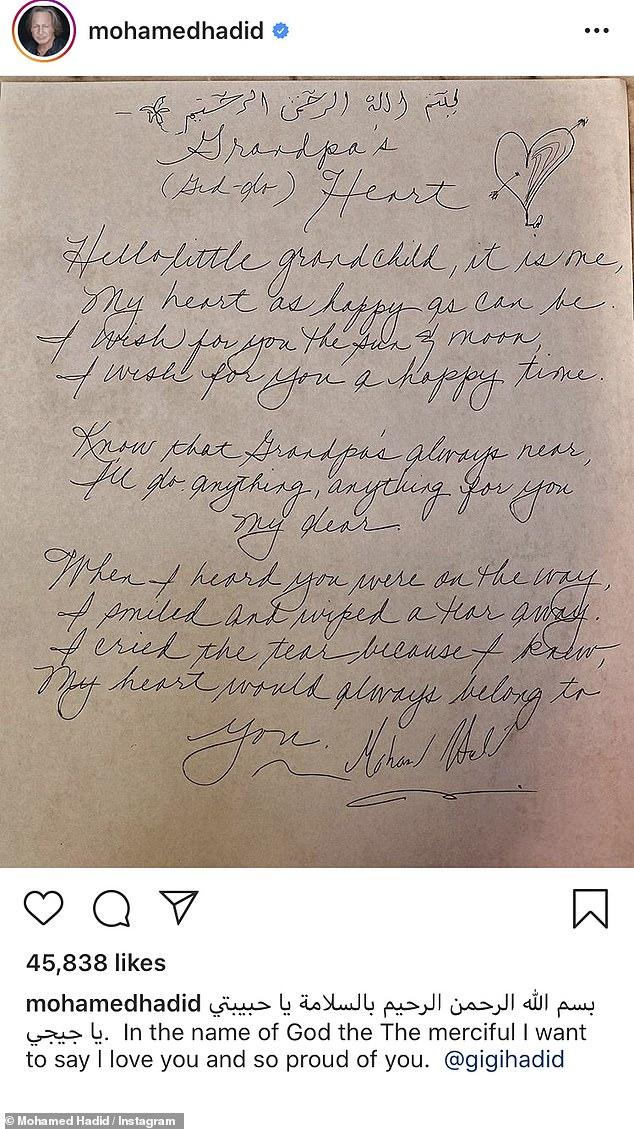 mohamedhadid
بسم الله الرحمن الرحيم
Grandpa's
(Gid-do) Heart
Hello little grandchild, it is me,
My heart as happy as can be.
I wish for you the sun & moon,
I wish for you a happy time.
Know that Grandpa's always near,
I'll do anything, anything for you
my dear.
When I heard you were on the way,
I smiled and wiped a tear away.
I cried the tear because I knew,
My heart would always belong to
you. Mohamed Hadid
45,838 likes
mohamedhadid بسم الله الرحمن الرحيم بالسلامة يا حبيبتي
يا جيجي. In the name of God the The merciful I want
to say I love you and so proud of you. @gigihadid
© Mohamed Hadid / Instagram